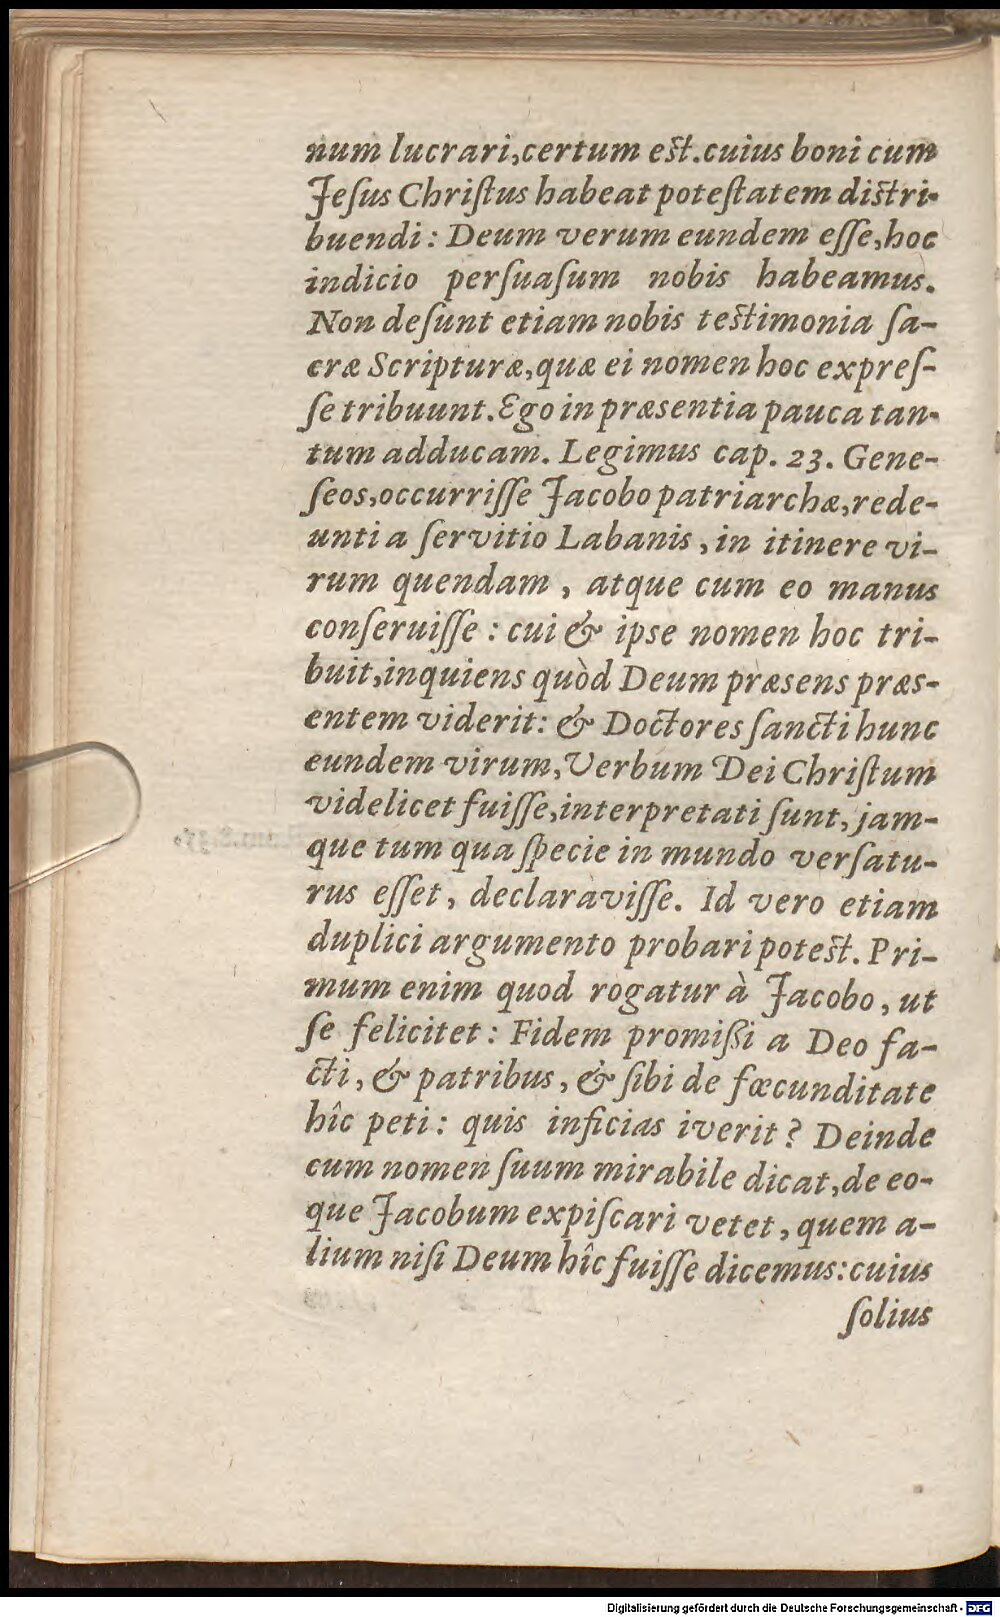 num lucrari,certum est.cuius boni cum
Jeſus Chriſtus habeat poteſtatem distri-
buendi: Deum verum eundem eſſe,hoc
indicio perſuaſum nobis habeamus.
Non deſunt etiam nobis testimonia ſa-
cræ Scripturæ,quæ ei nomen hoc expreſ-
ſe tribuunt.Ego in præsentia pauca tan-
tum adducam. Legimus cap. 23. Gene-
ſeos,occurriſſe Jacobo patriarchæ,rede-
unti a ſervitio Labanis, in itinere vi-
rum quendam, atque cum eo manus
conſeruiſſe: cui & ipse nomen hoc tri-
buit,inquiens quòd Deum præsens præs-
entem viderit: & Doctores ſancti hunc
eundem virum,Verbum Dei Chriſtum
videlicet fuiſſe,interpretati ſunt, jam-
que tum qua ſpecie in mundo verſatu-
rus eſſet, declaraviſſe. Id vero etiam
duplici argumento probari potest. Pri-
mum enim quod rogatur à Jacobo, ut
ſe felicitet: Fidem promißi a Deo fa-
cti, & patribus, & ſibi de fœcunditate
hîc peti: quis inficias iverit? Deinde
cum nomen ſuum mirabile dicat,de eo-
que Jacobum expiſcari vetet, quem a-
lium niſi Deum hîc fuiſſe dicemus:cuius
ſolius
Digitalisierung gefördert durch die Deutsche Forschungsgemeinschaft - DFG